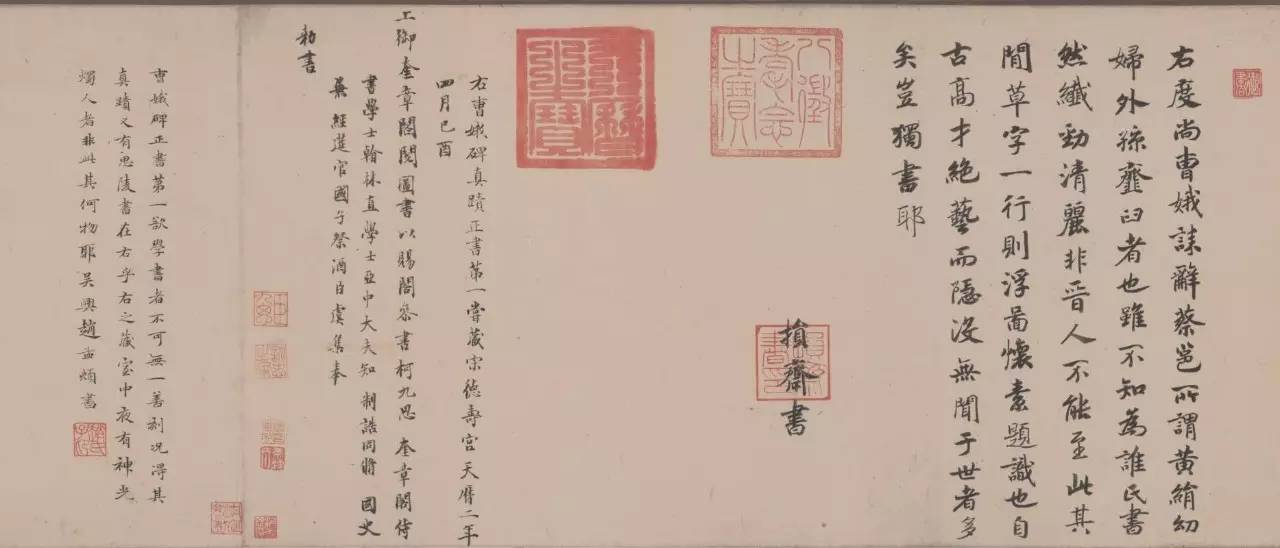 右度尚曹娥誄辭蔡邕所謂黃絹幼
婦外孫虀臼者也雖不知為誰氏書
然纖勁清麗非晉人不能至此其
間草字一行則浮啚懷素題識也自
古高才絕藝而隱沒無聞于世者多
矣豈獨書耶
八徵耄念之寶
損齋書
天曆之寶
右曹娥碑真蹟正書第一嘗藏宋德壽宮天曆二年
四月己酉
上御奎章閣閱圖書以賜閣參書柯九思 奎章閣侍
書學士翰林直學士亞中大夫知 制誥同脩 國史
兼 經筵官國子祭酒臣虞集奉
勅書
曹娥碑正書第一欲學書者不可無一善刻況得其
真蹟又有思陵書在右乎右之藏室中夜有神光
燭人者非此其何物耶吳興趙孟頫書
趙氏子昂